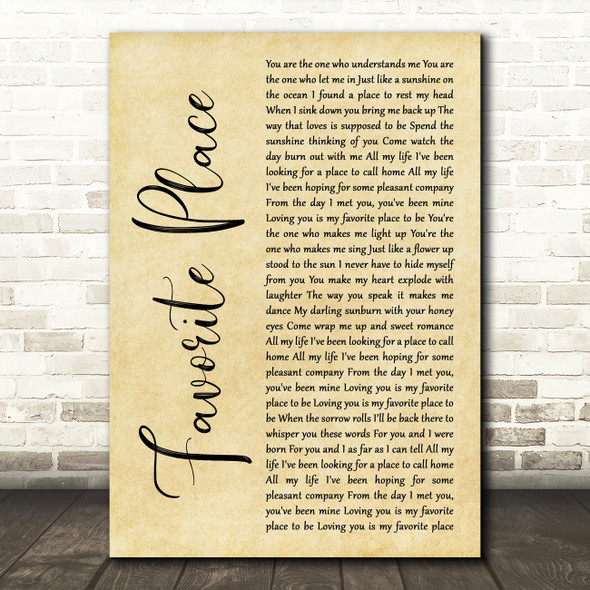 Favorite Place
You are the one who understands me You are
the one who let me in Just like a sunshine on
the ocean I found a place to rest my head
When I sink down you bring me back up The
way that loves is supposed to be Spend the
sunshine thinking of you Come watch the
day burn out with me All my life I've been
looking for a place to call home All my life
I've been hoping for some pleasant company
From the day I met you, you've been mine
Loving you is my favorite place to be You're
the one who makes me light up You're the
one who makes me sing Just like a flower up
stood to the sun I never have to hide myself
from you You make my heart explode with
laughter The way you speak it makes me
dance My darling sunburn with your honey
eyes Come wrap me up and sweet romance
All my life I've been looking for a place to call
home All my life I've been hoping for some
pleasant company From the day I met you,
you've been mine Loving you is my favorite
place to be Loving you is my favorite place to
be When the sorrow rolls I'll be back there to
whisper you these words For you and I were
born For you and I as far as I can tell All my
life I've been looking for a place to call home
All my life I've been hoping for some
pleasant company From the day I met you,
you've been mine Loving you is my favorite
place to be Loving you is my favorite place